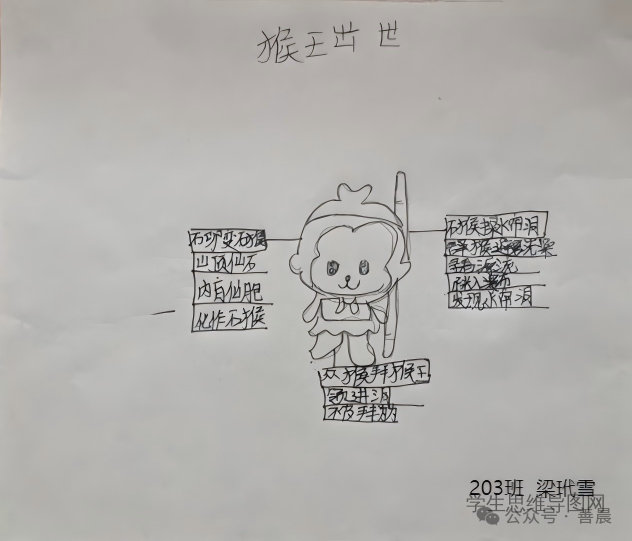 猴王出世
石卵变石猴
山顶仙石
内育仙胞
化作石猴
石猴探水帘洞
寻找源流
跳入瀑布
发现水帘洞
众猴拜猴王
领进洞
203班 梁玳雪
学生思维导图网
公众号·善晨